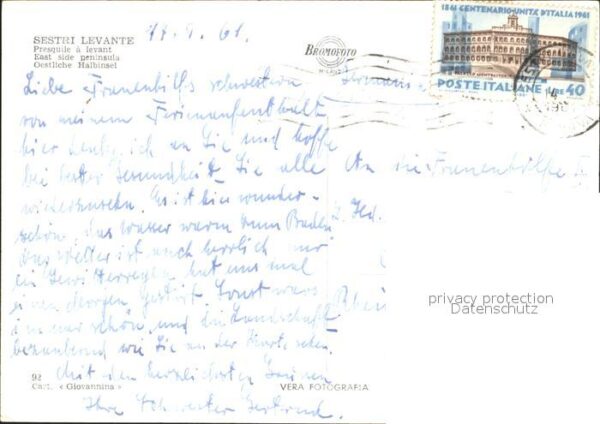 SESTRI LEVANTE
Presquile à levant
East side peninsula
Oestliche Halbinsel
.61.
BROMOFOTO
MILANO
1861 CENTENARIO UNITÀ D'ITALIA 1961
POSTE ITALIANE LIRE 40
Liebe Frauenhilfsschwestern
von meinem Ferienaufenthalt
hier denke ich an Sie und hoffe
bei bester Gesundheit Sie alle
wiederzusehn. Es ist hier wunder-
schön, das Wasser warm zum Baden
das Wetter ist auch herrlich nur
ein Gewitterregen hat uns mal
einen Morgen gestört. Sonst wars
immer schön, und die Landschaft
bezaubernd wie Sie an der Karte sehen.
Mit den herzlichsten Grüssen
Ihre Schwester Gertrud.
An die Frauenhilfe
Rhein
92
Cart. « Giovannina »
VERA FOTOGRAFIA
privacy protection
Datenschutz